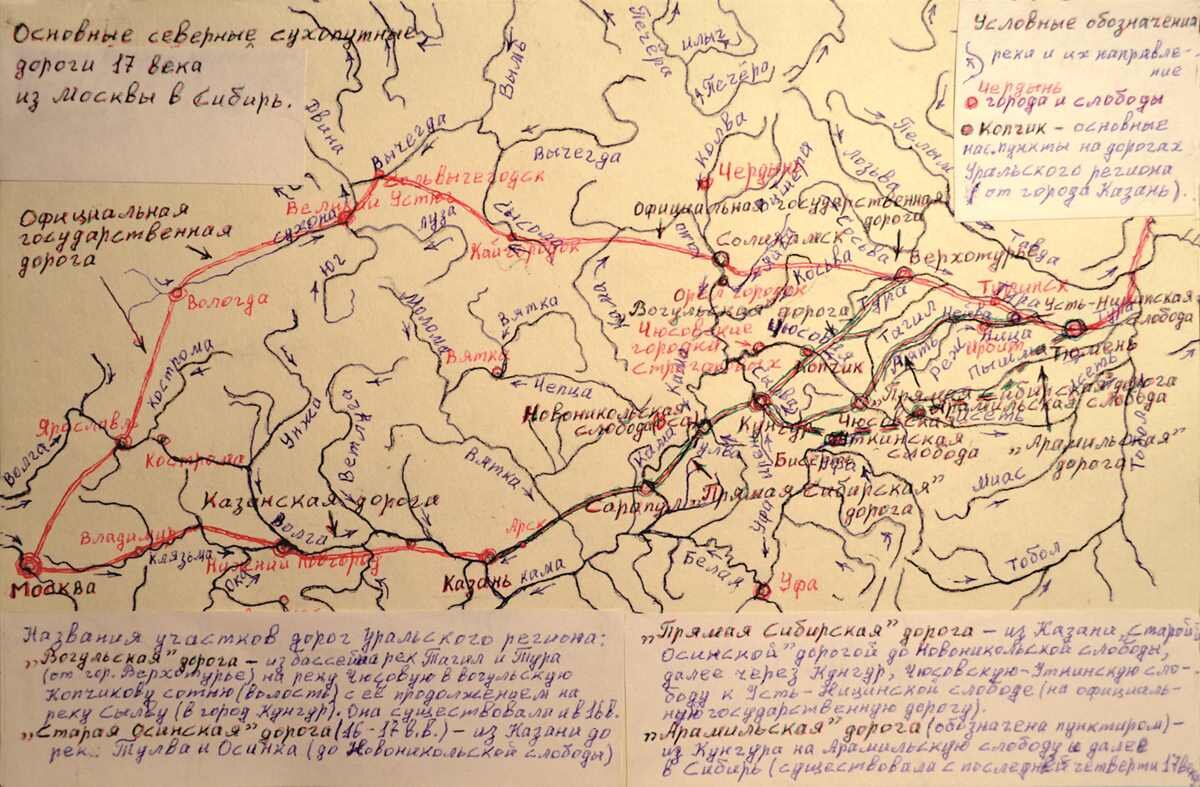 Основные северные сухопутные
дороги 17 века
из Москвы в Сибирь.
Условные обозначения
реки и их направле-
ние
Чердынь
города и слободы
Копчик - основные
нас.пункты на дорогах
Уральского региона
(от города Казань).
Печёра
Илыч
Печёра
Вымь
Двина
Вычегда
Вычегда
Колва
Вишера
Лозьва
Пелым
Чердынь
Сольвычегодск
Великий Устюг
Сухона
Луза
Юг
Сысола
Кайгородок
Официальная
государственная
дорога
Официальная государственная
дорога
Соликамск
Яйва
Косьва
Верхотурье
Тавда
Вологда
Орёл городок
Кама
Вогульская дорога
Тура
Тагил
Туринск
Тура
Усть-Ницинская
слобода
Тура
Нейва
Ница
Ирбит
Реж
Пышма
Тюмень
Исеть
Чюсовские
городки
Строгановых
Чюсовая
Копчик
Молома
Вятка
Вятка
Чепца
Кострома
Унжа
Ветлуга
Ярославль
Волга
Кострома
Новоникольская
слобода
(Оса)
Кама
Кама
Тулва
Кунгур
"Прямая Сибирская" дорога
Арамильская слобода
Чюсовская
Уткинская
слобода
"Арамильская"
дорога
Тобол
Уфа
Миасс
Вятка
Сарапул
"Прямая Сибирская"
дорога
Казанская дорога
Владимир
Клязьма
Волга
Нижний Новгород
Ока
Арск
Казань
Кама
Белая
Уфа
Уфа
Тобол
Москва
Названия участков дорог Уральского региона:
"Вогульская" дорога - из бассейна рек Тагил и Тура
(от гор. Верхотурье) на реку Чюсовую в вогульскую
Копчикову сотню (волость) с её продолжением на
реку Сылву (в город Кунгур). Она существовала и в 16 в.
"Старая Осинская" дорога (16-17 в.в.) - из Казани до
рек: Тулва и Осинка (до Новоникольской слободы)
"Прямая Сибирская" дорога - из Казани, "Старой
Осинской" дорогой до Новоникольской слободы,
далее через Кунгур, Чюсовскую-Уткинскую сло-
боду к Усть-Ницинской слободе (на официаль-
ную государственную дорогу).
"Арамильская" дорога (обозначена пунктиром) -
из Кунгура на Арамильскую слободу и далее
в Сибирь (существовала с последней четверти 17 века)